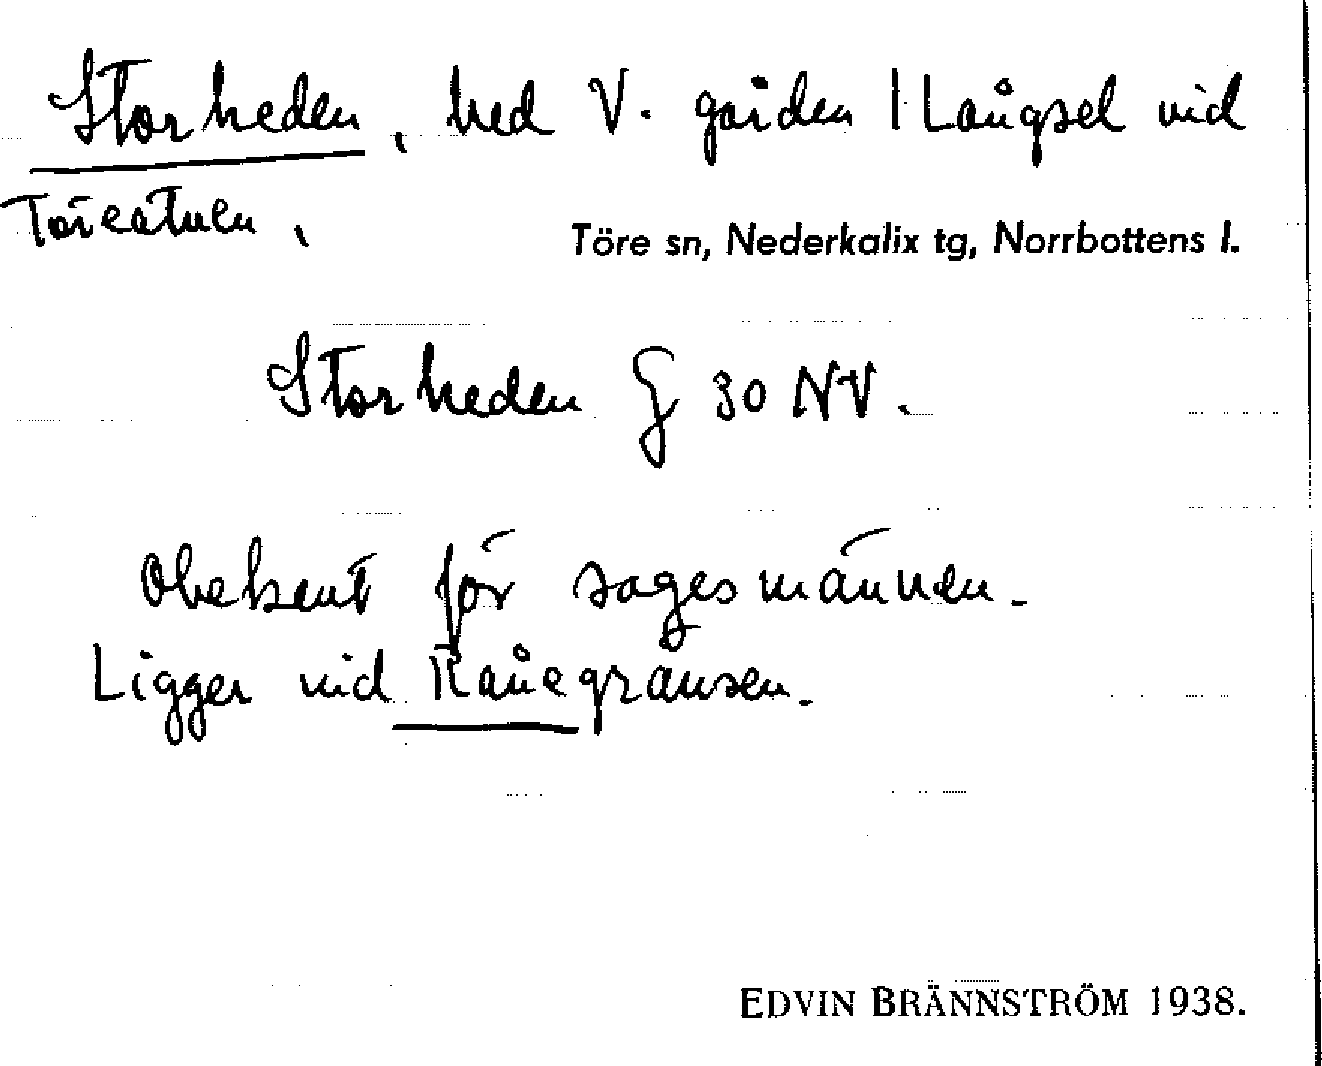 Storheden, hed V. gården i Långsel vid
Töreälven,
Töre sn, Nederkalix tg, Norrbottens l.
Storheden G 30 NV.
Obekant för sagesmännen.
Ligger vid Rånegränsen.
EDVIN BRÄNNSTRÖM 1938.